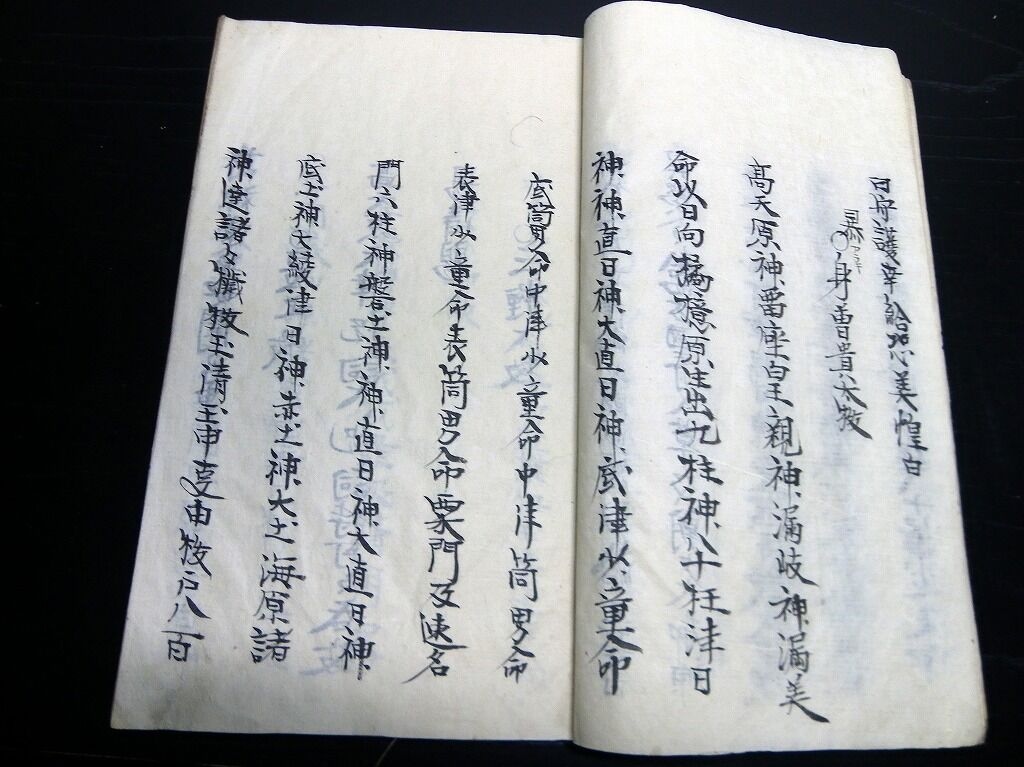 日守護幸給恐美惶白
○身曽貴太祓
高天原神留座皇親神漏岐神漏美
命以日向橘檍原生出九柱神八十枉津日
神神直日神大直日神底津少童命
底筒男命中津少童命中津筒男命
表津少童命表筒男命粟門及速名
門六柱神磐土神神直日神大直日神
底土神大綾津日神赤土神大土海原諸
神達諸々穢祓玉清玉申事由祓戸八百